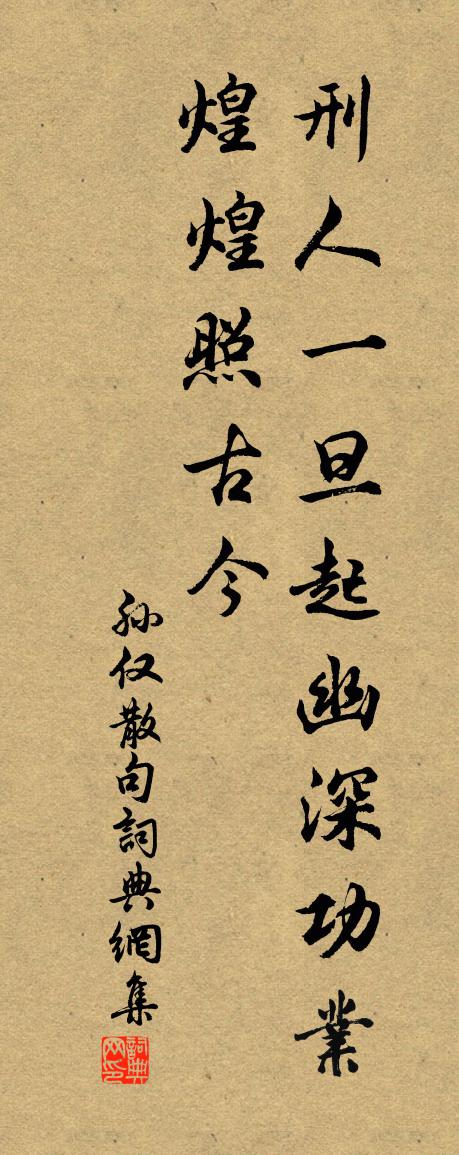 刑人一旦起幽深功業
煌煌照古今
孙仅散句詞典網集
詞典网印